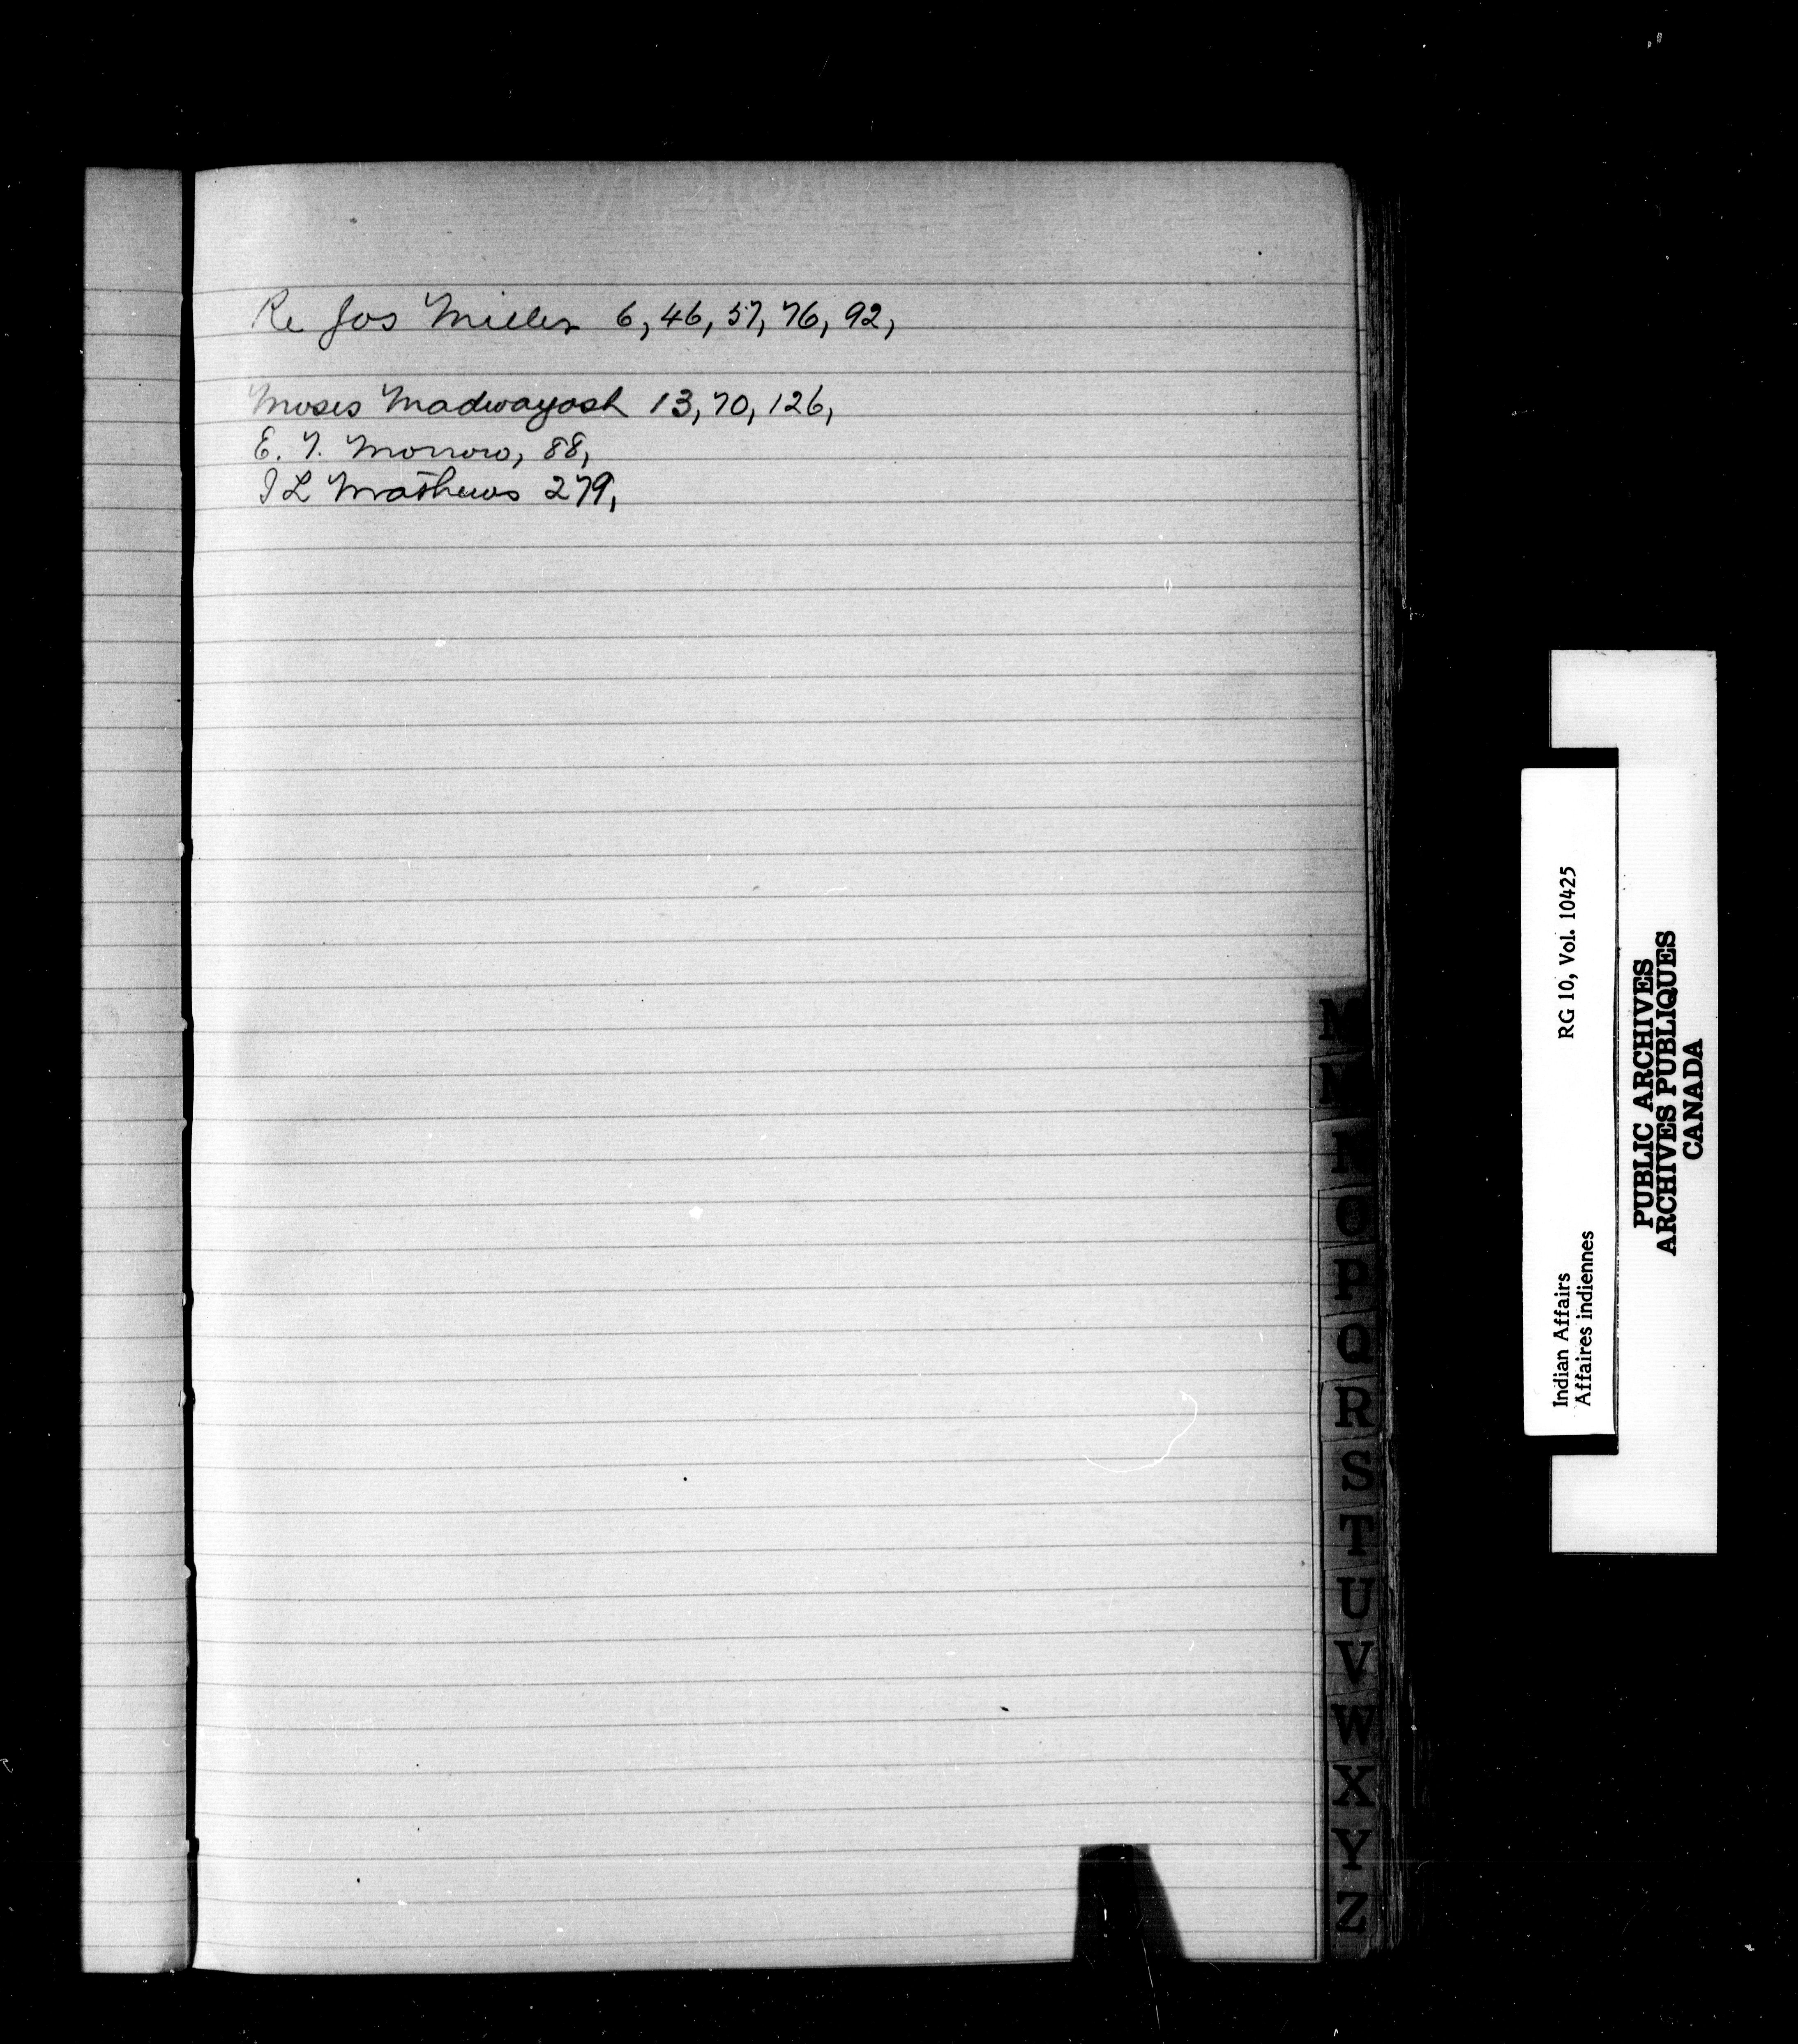 Re Jos Miller 6, 46, 57, 76, 92,
Moses Madwayosh 13, 70, 126,
E. T. Morrow, 88,
I L Mathews 279,
M
O
P
Q
R
S
T
U
V
W
X
Y
Z
Indian Affairs RG 10, Vol. 10425
Affaires indiennes
PUBLIC ARCHIVES
ARCHIVES PUBLIQUES
CANADA